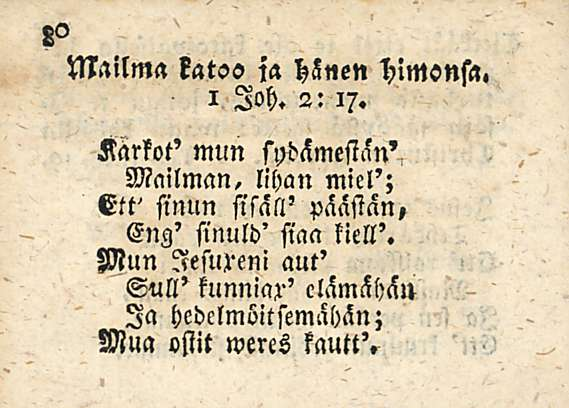 80
Mailma katoo ja hänen himonsa.
1 Joh. 2: 17.
Karkot' mun sydämestän'
Mailman, lihan miel';
Ett' sinun sisäll' päästän,
Eng' sinuld' siaa kiell'.
Mun Jesuxeni aut'
Sull' kunniax' elämähän
Ja hedelmöitsemähän;
Mua ostit weres kautt'.